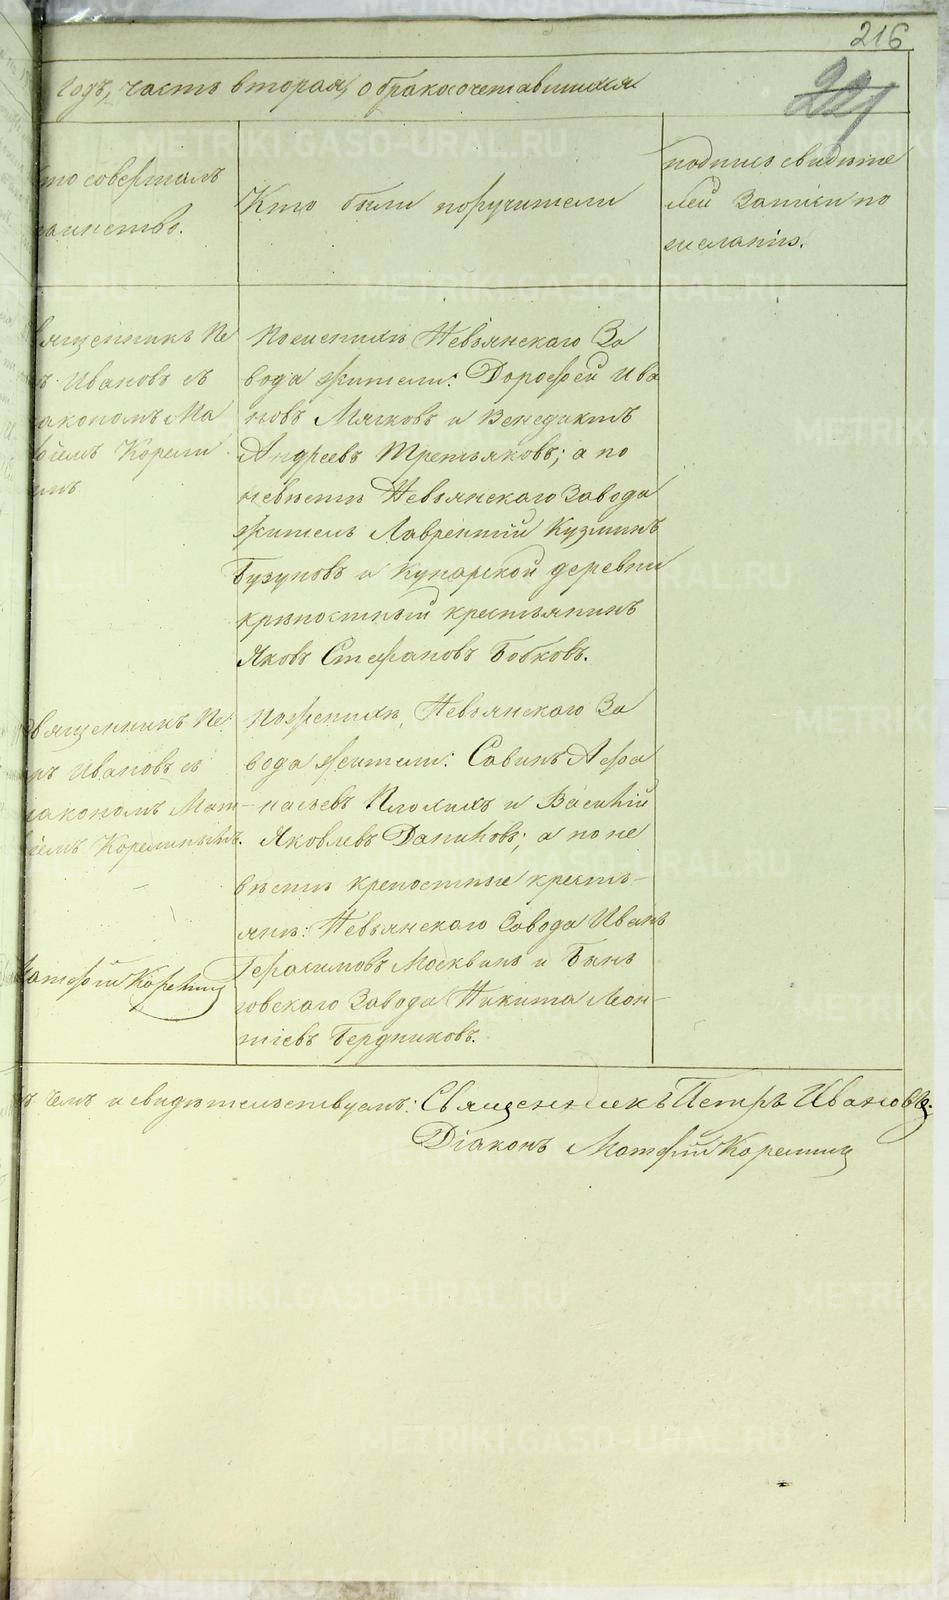 216
221
годъ, часть вторая, о бракосочетавшихся
то совершалъ
таинство.
Кто были поручители
подпись свидѣте
лей записи по
желанію.
вященникъ Пе
ъ Ивановъ съ
иакономъ Ма
ѳіемъ Корели
ымъ
По женихѣ Невьянскаго За
вода жители: Дорофей Ива
новъ Мягковъ и Венедиктъ
Андреевъ Третьяковъ; а по
невѣстѣ Невьянскаго Завода
житель Лаврентій Кузминъ
Бузуновъ и Кунарской деревни
крѣпостный крестьянинъ
Яковъ Стефановъ Бобковъ.
вященникъ Пе
ръ Ивановъ съ
іакономъ Мат
ѳіемъ Корелинымъ.
Матфій Корелинъ
По женихѣ, Невьянскаго За
вода жители: Савинъ Афа
насьевъ Плохихъ и Василій
Яковлевъ Даниловъ; а по не
вѣстѣ крепостные кресть-
яне: Невьянскаго Завода Иванъ
Герасимовъ Москвинъ и Бын
говскаго Завода Никита Леон-
тіевъ Бердниковъ.
ъ чемъ и свидѣтельствуемъ: Священникъ Петръ Ивановъ.
Діаконъ Матфій Корелинъ
METRIKI.GASO-URAL.RU